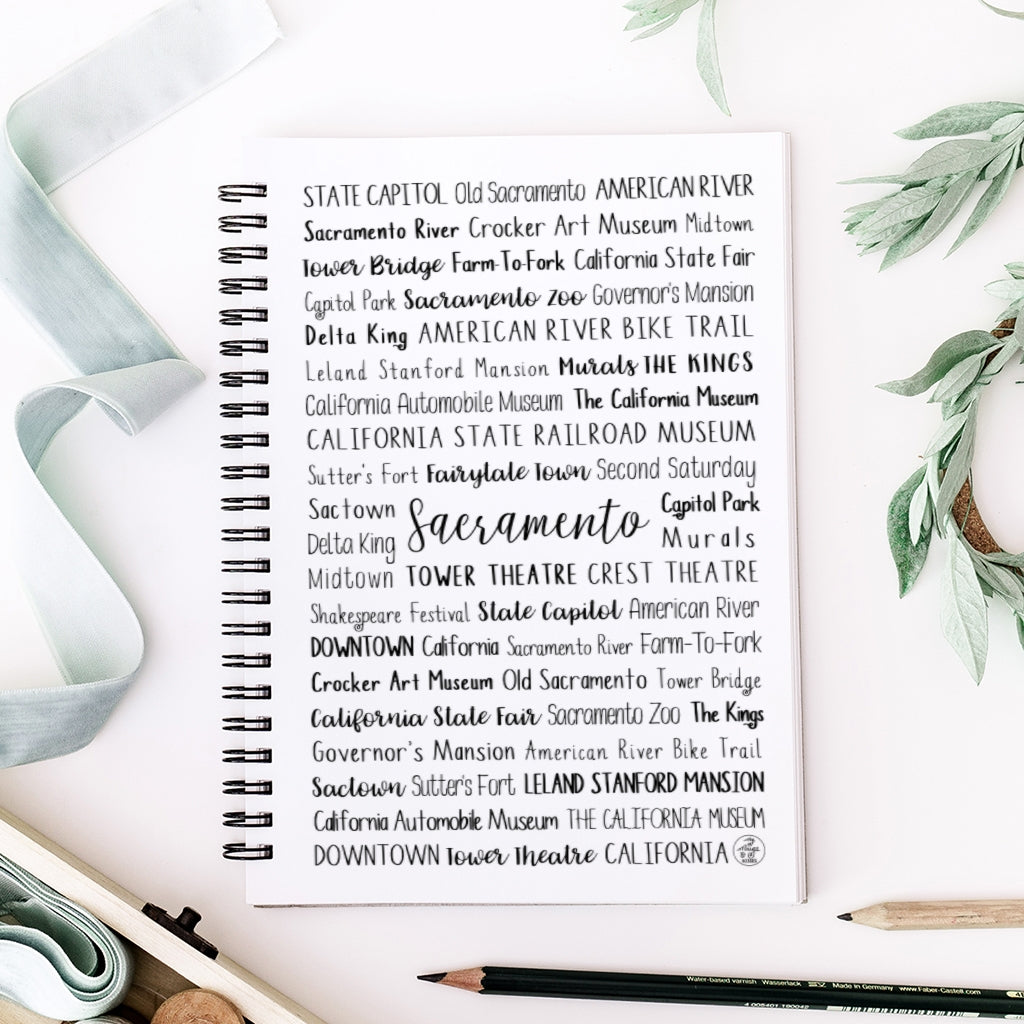 STATE CAPITOL Old Sacramento AMERICAN RIVER
Sacramento River Crocker Art Museum Midtown
Tower Bridge Farm-To-Fork California State Fair
Capitol Park Sacramento Zoo Governor's Mansion
Delta King AMERICAN RIVER BIKE TRAIL
Leland Stanford Mansion Murals THE KINGS
California Automobile Museum The California Museum
CALIFORNIA STATE RAILROAD MUSEUM
Sutter's Fort Fairytale Town Second Saturday
Sactown Sacramento Capitol Park
Delta King Murals
Midtown TOWER THEATRE CREST THEATRE
Shakespeare Festival State Capitol American River
DOWNTOWN California Sacramento River Farm-To-Fork
Crocker Art Museum Old Sacramento Tower Bridge
California State Fair Sacramento Zoo The Kings
Governor's Mansion American River Bike Trail
Sactown Sutter's Fort LELAND STANFORD MANSION
California Automobile Museum THE CALIFORNIA MUSEUM
DOWNTOWN Tower Theatre CALIFORNIA
Water-based varnish Wasserlack Made in Germany www.Faber-Castell.com
4 005401 190042